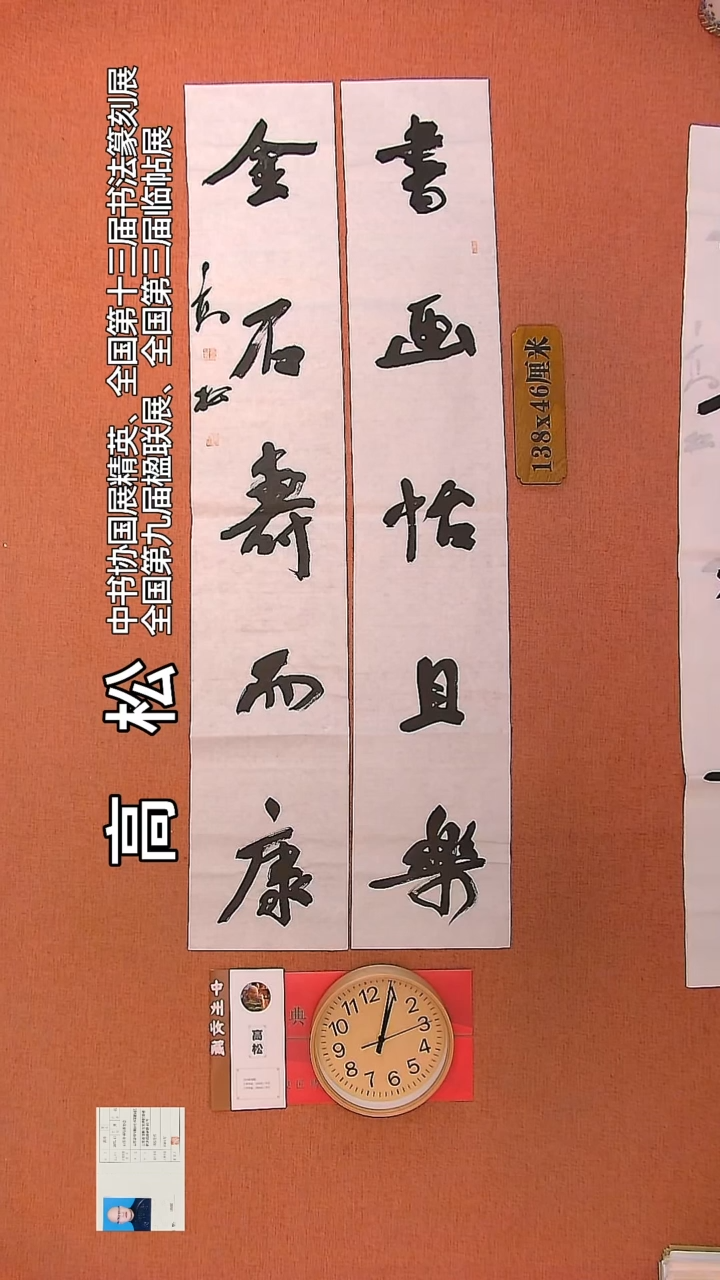 書画怡且樂
金石壽而康
高松
138x46厘米
高 松
中书协国展精英、全国第十三届书法篆刻展
全国第九届楹联展、全国第三届临帖展
典
高松
12
2
3
4
5
6
7
8
9
10
11